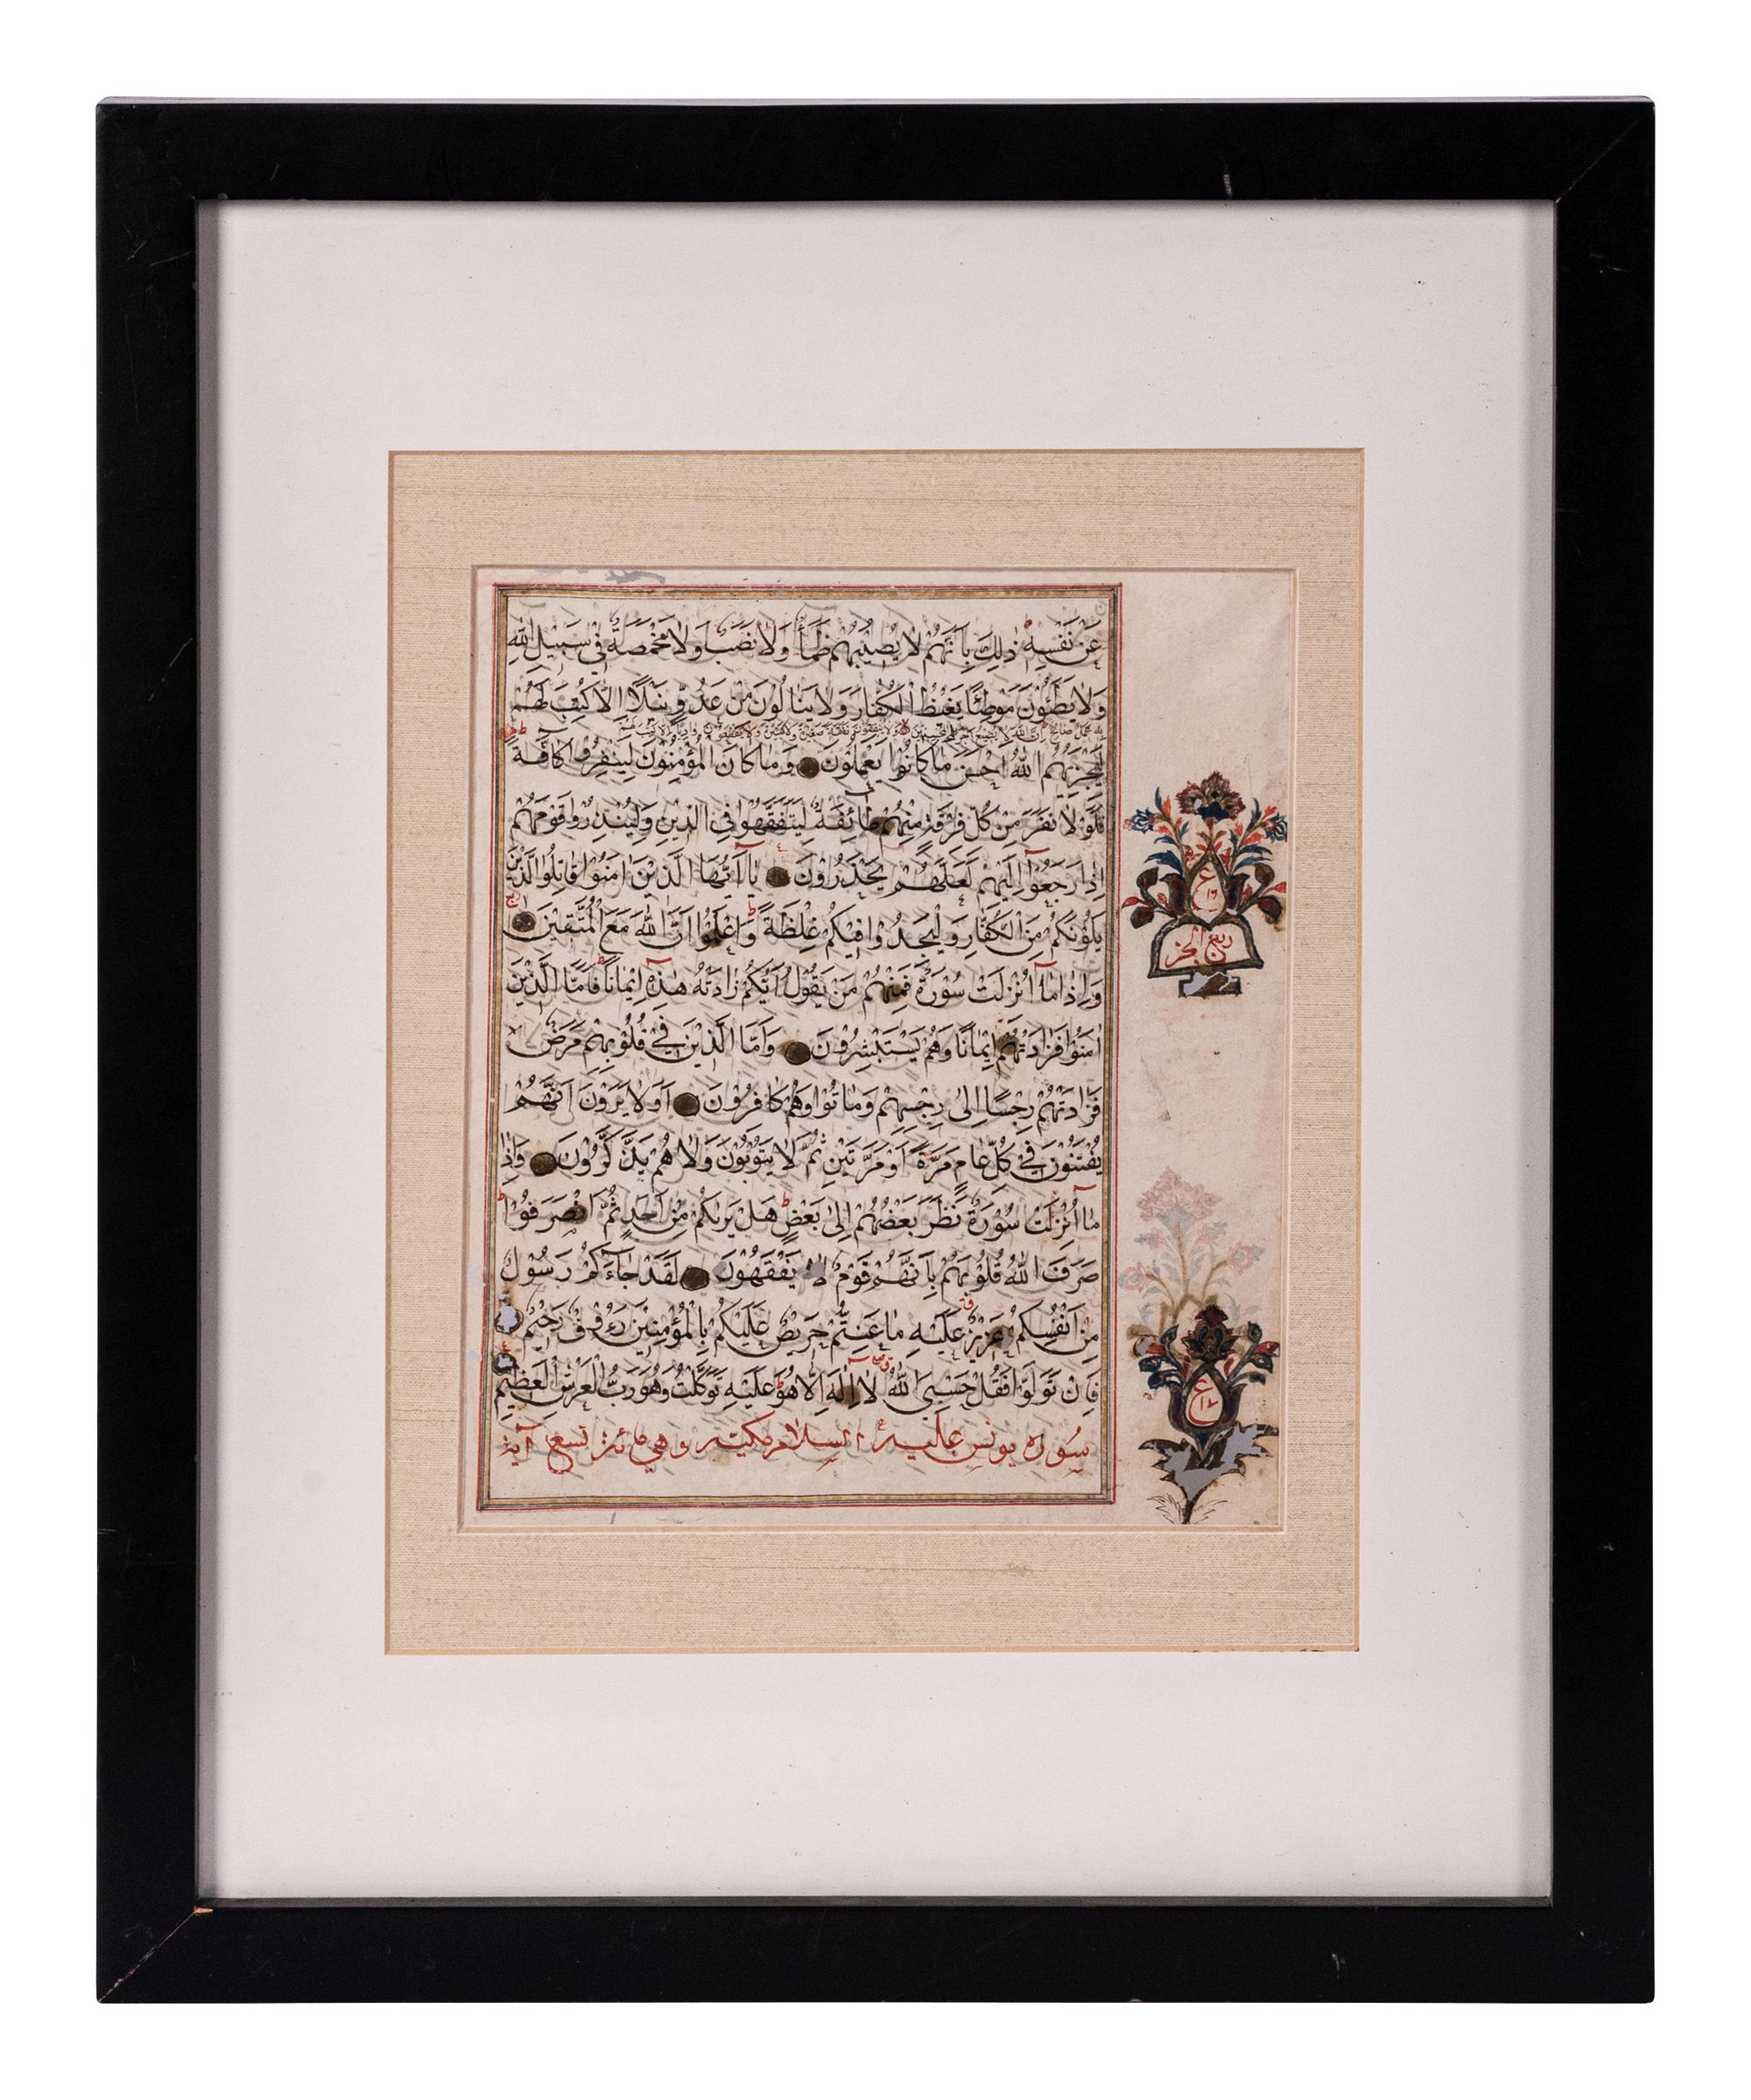 عَنْ نَفْسِهِ ذٰلِكَ بِاَنَّهُمْ لَا يُصِيْبُهُمْ ظَمَأٌ وَلَا نَصَبٌ وَلَا مَخْمَصَةٌ فِيْ سَبِيْلِ اللّٰهِ
وَلَا يَطَئُوْنَ مَوْطِئًا يَغِيْظُ الْكُفَّارَ وَلَا يَنَالُوْنَ مِنْ عَدُوٍّ نَيْلًا اِلَّا كُتِبَ لَهُمْ
بِهِ عَمَلٌ صَالِحٌ اِنَّ اللّٰهَ لَا يُضِيْعُ اَجْرَ الْمُحْسِنِيْنَ وَلَا يُنْفِقُوْنَ نَفَقَةً صَغِيْرَةً وَلَا كَبِيْرَةً وَلَا يَقْطَعُوْنَ وَادِيًا اِلَّا كُتِبَ لَهُمْ
لِيَجْزِيَهُمُ اللّٰهُ اَحْسَنَ مَا كَانُوْا يَعْمَلُوْنَ وَمَا كَانَ الْمُؤْمِنُوْنَ لِيَنْفِرُوْا كَافَّةً
فَلَوْلَا نَفَرَ مِنْ كُلِّ فِرْقَةٍ مِنْهُمْ طَائِفَةٌ لِيَتَفَقَّهُوْا فِي الدِّيْنِ وَلِيُنْذِرُوْا قَوْمَهُمْ
اِذَا رَجَعُوْا اِلَيْهِمْ لَعَلَّهُمْ يَحْذَرُوْنَ يَا اَيُّهَا الَّذِيْنَ اٰمَنُوْا قَاتِلُوا الَّذِيْنَ
يَلُوْنَكُمْ مِنَ الْكُفَّارِ وَلْيَجِدُوْا فِيْكُمْ غِلْظَةً وَاعْلَمُوْا اَنَّ اللّٰهَ مَعَ الْمُتَّقِيْنَ
وَاِذَا مَا اُنْزِلَتْ سُوْرَةٌ فَمِنْهُمْ مَنْ يَقُوْلُ اَيُّكُمْ زَادَتْهُ هٰذِهِ اِيْمَانًا فَاَمَّا الَّذِيْنَ
اٰمَنُوْا فَزَادَتْهُمْ اِيْمَانًا وَهُمْ يَسْتَبْشِرُوْنَ وَاَمَّا الَّذِيْنَ فِيْ قُلُوْبِهِمْ مَرَضٌ
فَزَادَتْهُمْ رِجْسًا اِلٰى رِجْسِهِمْ وَمَاتُوْا وَهُمْ كَافِرُوْنَ اَوَلَا يَرَوْنَ اَنَّهُمْ
يُفْتَنُوْنَ فِيْ كُلِّ عَامٍ مَرَّةً اَوْ مَرَّتَيْنِ ثُمَّ لَا يَتُوْبُوْنَ وَلَا هُمْ يَذَّكَّرُوْنَ وَاِذَا
مَا اُنْزِلَتْ سُوْرَةٌ نَظَرَ بَعْضُهُمْ اِلٰى بَعْضٍ هَلْ يَرٰىكُمْ مِنْ اَحَدٍ ثُمَّ انْصَرَفُوْا
صَرَفَ اللّٰهُ قُلُوْبَهُمْ بِاَنَّهُمْ قَوْمٌ لَا يَفْقَهُوْنَ لَقَدْ جَاءَكُمْ رَسُوْلٌ
مِنْ اَنْفُسِكُمْ عَزِيْزٌ عَلَيْهِ مَا عَنِتُّمْ حَرِيْصٌ عَلَيْكُمْ بِالْمُؤْمِنِيْنَ رَءُوْفٌ رَحِيْمٌ
فَاِنْ تَوَلَّوْا فَقُلْ حَسْبِيَ اللّٰهُ لَا اِلٰهَ اِلَّا هُوَ عَلَيْهِ تَوَكَّلْتُ وَهُوَ رَبُّ الْعَرْشِ الْعَظِيْمِ
سورة يونس عليه السلام مكية وهي مائة تسع آية
ع
ربع الجز
ع